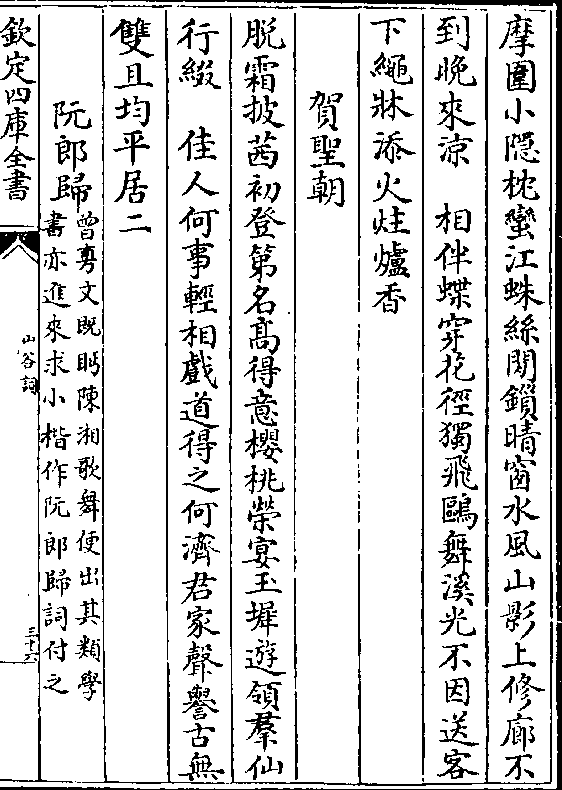 摩圍小隱枕蠻江蛛絲閉鎖晴窗水風山影上修廊不
到晚來涼　相伴蝶穿花徑獨飛鷗舞溪光不因送客
下繩牀添火炷爐香
賀聖朝
脫霜披茜初登第名髙得意櫻桃榮宴玉墀遊領羣仙
行綴　佳人何事輕相戲道得之何濟君家聲譽古無
雙且均平居二
阮郎歸
曾旉文既眄陳湘歌舞便出其類學
書亦進來求小楷作阮郎歸詞付之
欽定四庫全書
山谷詞
三十六